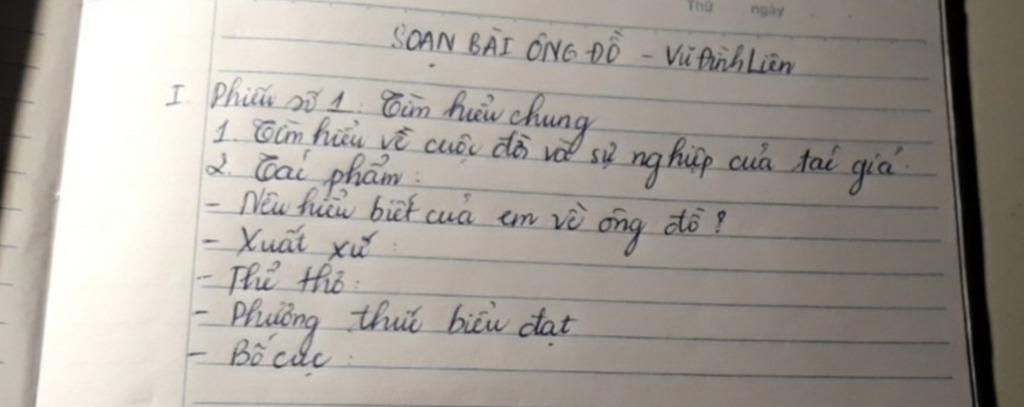 Thứ ngày
SOẠN BÀI ÔNG ĐỒ - Vũ Đình Liên
I. Phiếu số 1: Tìm hiểu chung
1. Tìm hiểu về cuộc đời và sự nghiệp của tác giả.
2. Tác phẩm:
- Nêu hiểu biết của em về ông đồ?
- Xuất xứ:
- Thể thơ:
- Phương thức biểu đạt
- Bố cục: